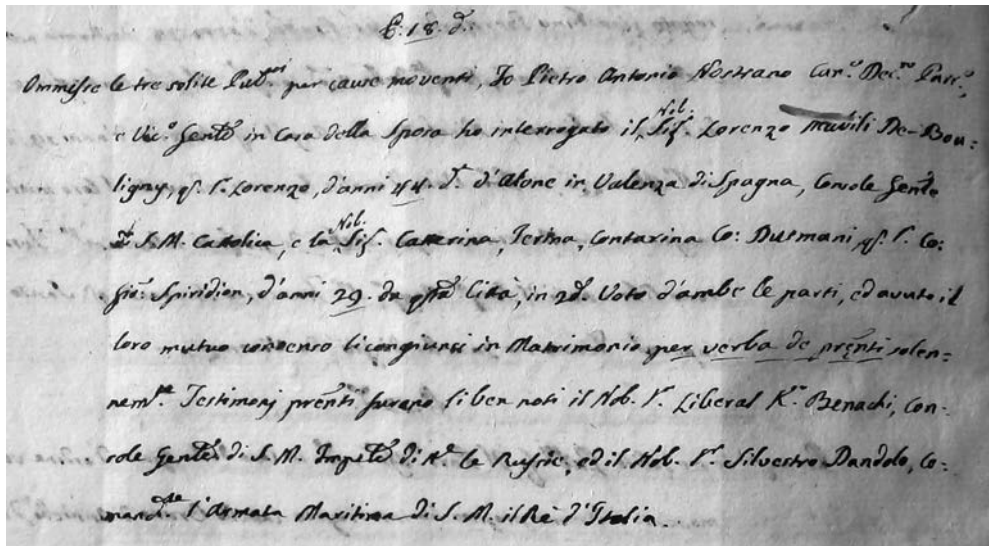 E. 18. d.
Ommisse le tre solite Pub.ni per cause moventi, Io Pietro Antonio Nostrano Can.o Dec.no Parr.o,
e Vic.o Gen.le in Casa della Sposa ho interrogato il Nob. Sig. Lorenzo De-Bou=
ligny, q. S. Lorenzo, d'anni 44. d'Alone in Valenza di Spagna, Console Gen.le
di S. M. Cattolica, e la Nob. Sig. Catterina, Contarina Co: Dusmani q. S. Co:
Gio: Spiridion, d'anni 29. da q.ta Città, in Voto d'ambe le parti, ed avuto il
loro mutuo consenso li congiunsi in Matrimonio per verba de prēnti solen=
nem.te Testimonj prēnti furano li ben noti il Nob. S.r Liberal K.r Benachi, Con=
sole Gen.le di S. M. Imp.le di le Russie, ed il Nob. S.r Silvestro Dandolo, Co=
mand.te l'Armata Maritima di S. M. il Rè d'Italia.